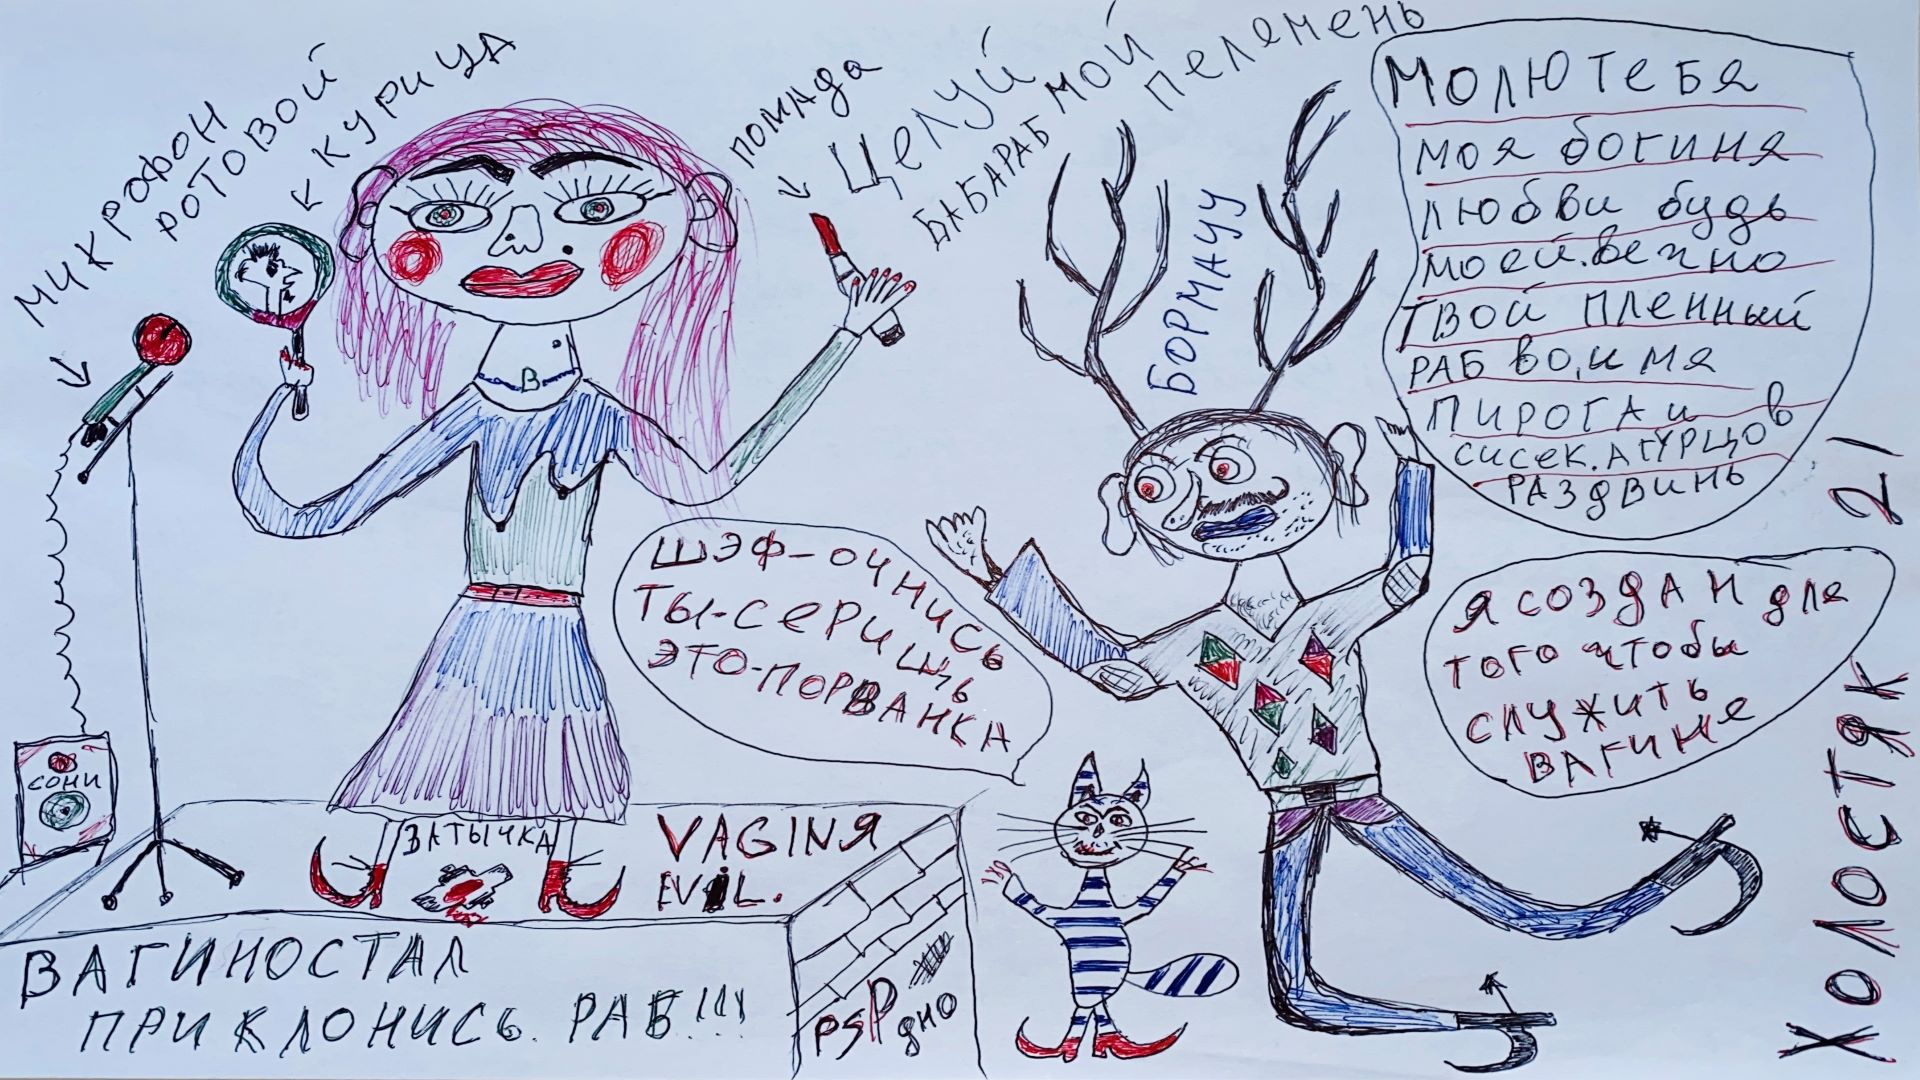 МИКРОФОН
РОТОВОЙ
КУРИЦА
ПОМАДА
Целуй
БАБАРАБ МОЙ
пелемень
БОРМАУУ
МОЛЮ Тебя
моя богиня
любви будь
моей. вечно
ТВОЙ ПЛЕННЫЙ
РАБ во, имя
ПИРОГА и
сисек. АГУРЦОВ
РАЗДВИНЬ
ШЭФ-ОЧНИСЬ
ТЫ-СЕРИЩЬ
ЭТО-ПОРВАНКА
Я СОЗДАН для
того чтобы
служить
ВАГИНе
ХОЛОСТЯК 21
В
СОНИ
ЗАТЫЧКА
VAGINЯ
EVIL.
ВАГИНОСТАЛ
ПРИКЛОНИСЬ. РАБ!!!
PSP
дно